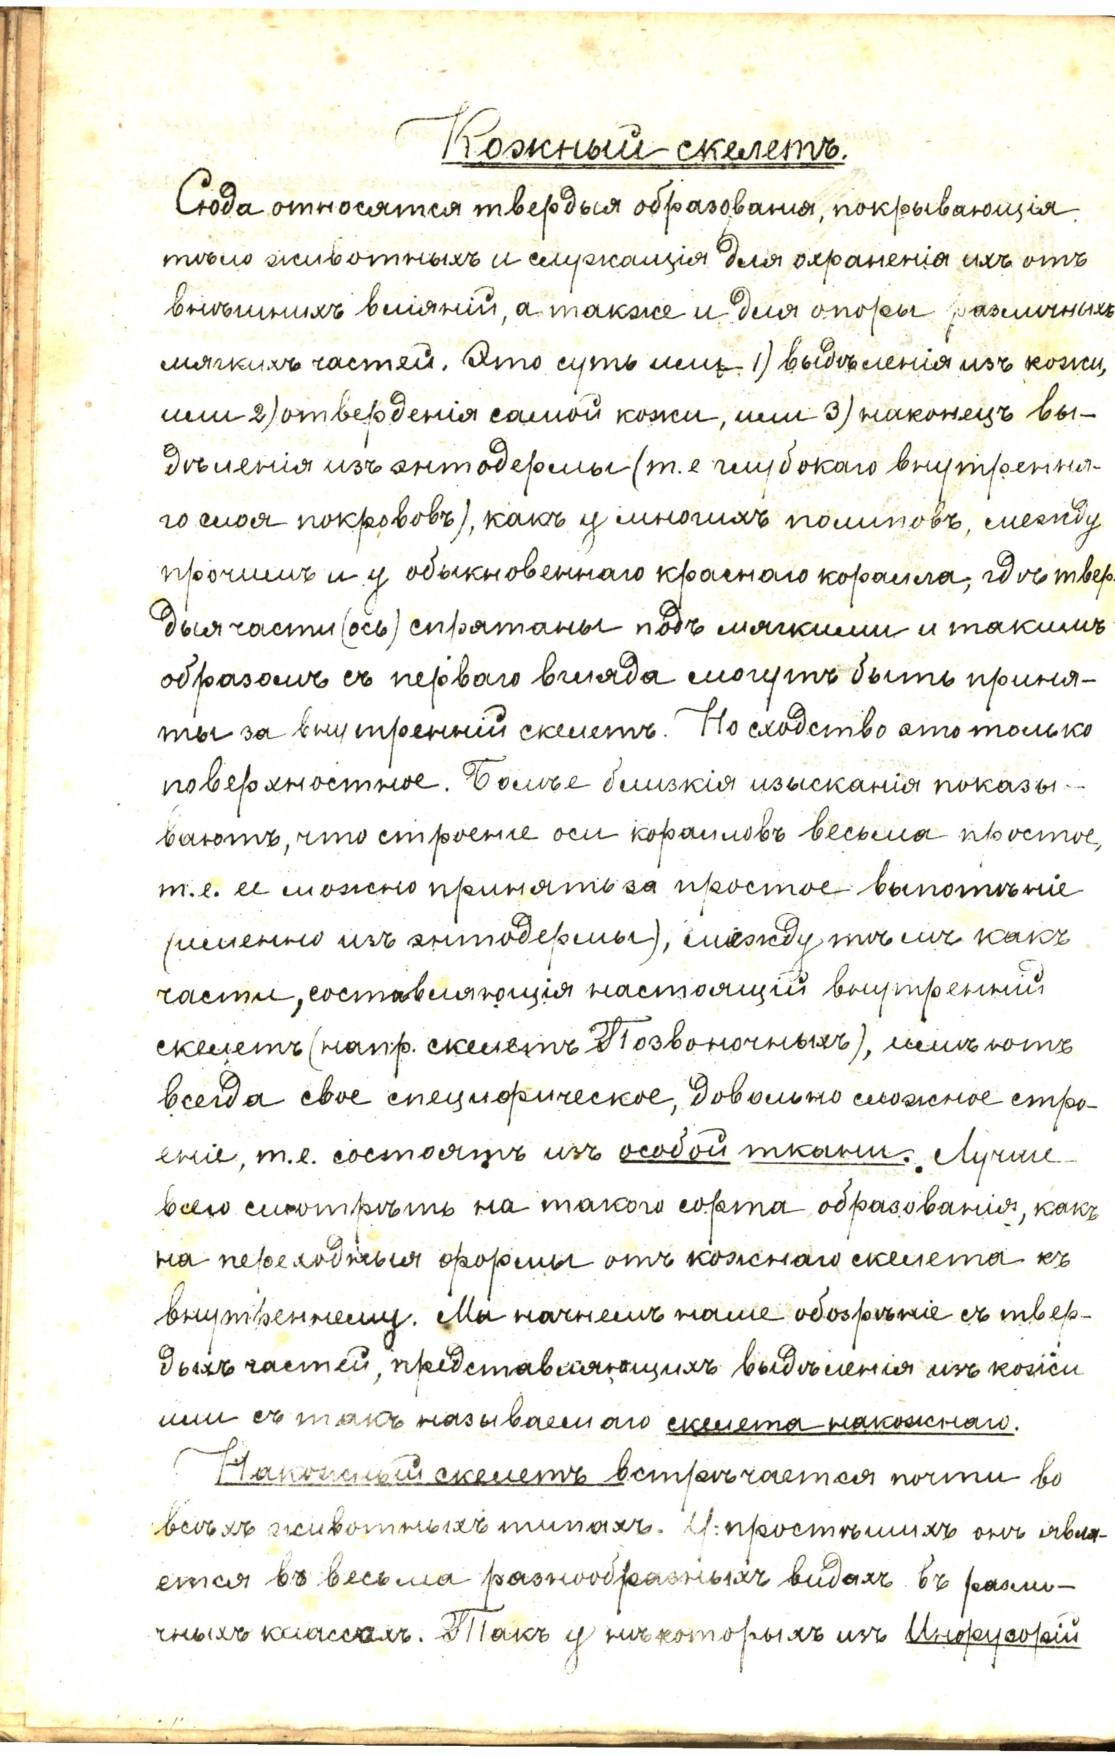 Кожный скелетъ.
Сюда относятся твердыя образованія, покрывающія
тѣло животныхъ и служащія для охраненія ихъ отъ
внѣшнихъ вліяній, а также и для опоры различныхъ
мягкихъ частей. Это суть или 1) выдѣленія изъ кожи,
или 2) отвердѣнія самой кожи, или 3) наконецъ вы-
дѣленія изъ энтодермы (т.е глубокаго внутрення-
го слоя покрововъ), какъ у многихъ полиповъ, между
прочимъ и у обыкновеннаго краснаго коралла, гдѣ твер-
дыя части (ось) спрятаны подъ мягкими и такимъ
образомъ съ перваго взгляда могутъ быть приня-
ты за внутренній скелетъ. Но сходство это только
поверхностное. Болѣе близкія изысканія показы-
ваютъ, что строеніе оси коралловъ весьма простое,
т.е. ее можно принять за простое выпотѣніе
(именно изъ энтодермы), между тѣмъ какъ
части, составляющія настоящій внутренній
скелетъ (напр. скелетъ Позвоночныхъ), имѣютъ
всегда свое специфическое, довольно сложное стро-
еніе, т.е. состоятъ изъ особой ткани. Лучше
всего смотрѣть на такого сорта образованія, какъ
на переходныя формы отъ кожнаго скелета къ
внутреннему. Мы начнемъ наше обозрѣніе съ твер-
дыхъ частей, представляющихъ выдѣленія изъ кожи
или съ такъ называемаго скелета накожнаго.
Накожный скелетъ встрѣчается почти во
всѣхъ животныхъ типахъ. У простѣйшихъ онъ явля-
ется въ весьма разнообразныхъ видахъ въ разли-
чныхъ классахъ. Такъ у нѣкоторыхъ изъ Инфузорій